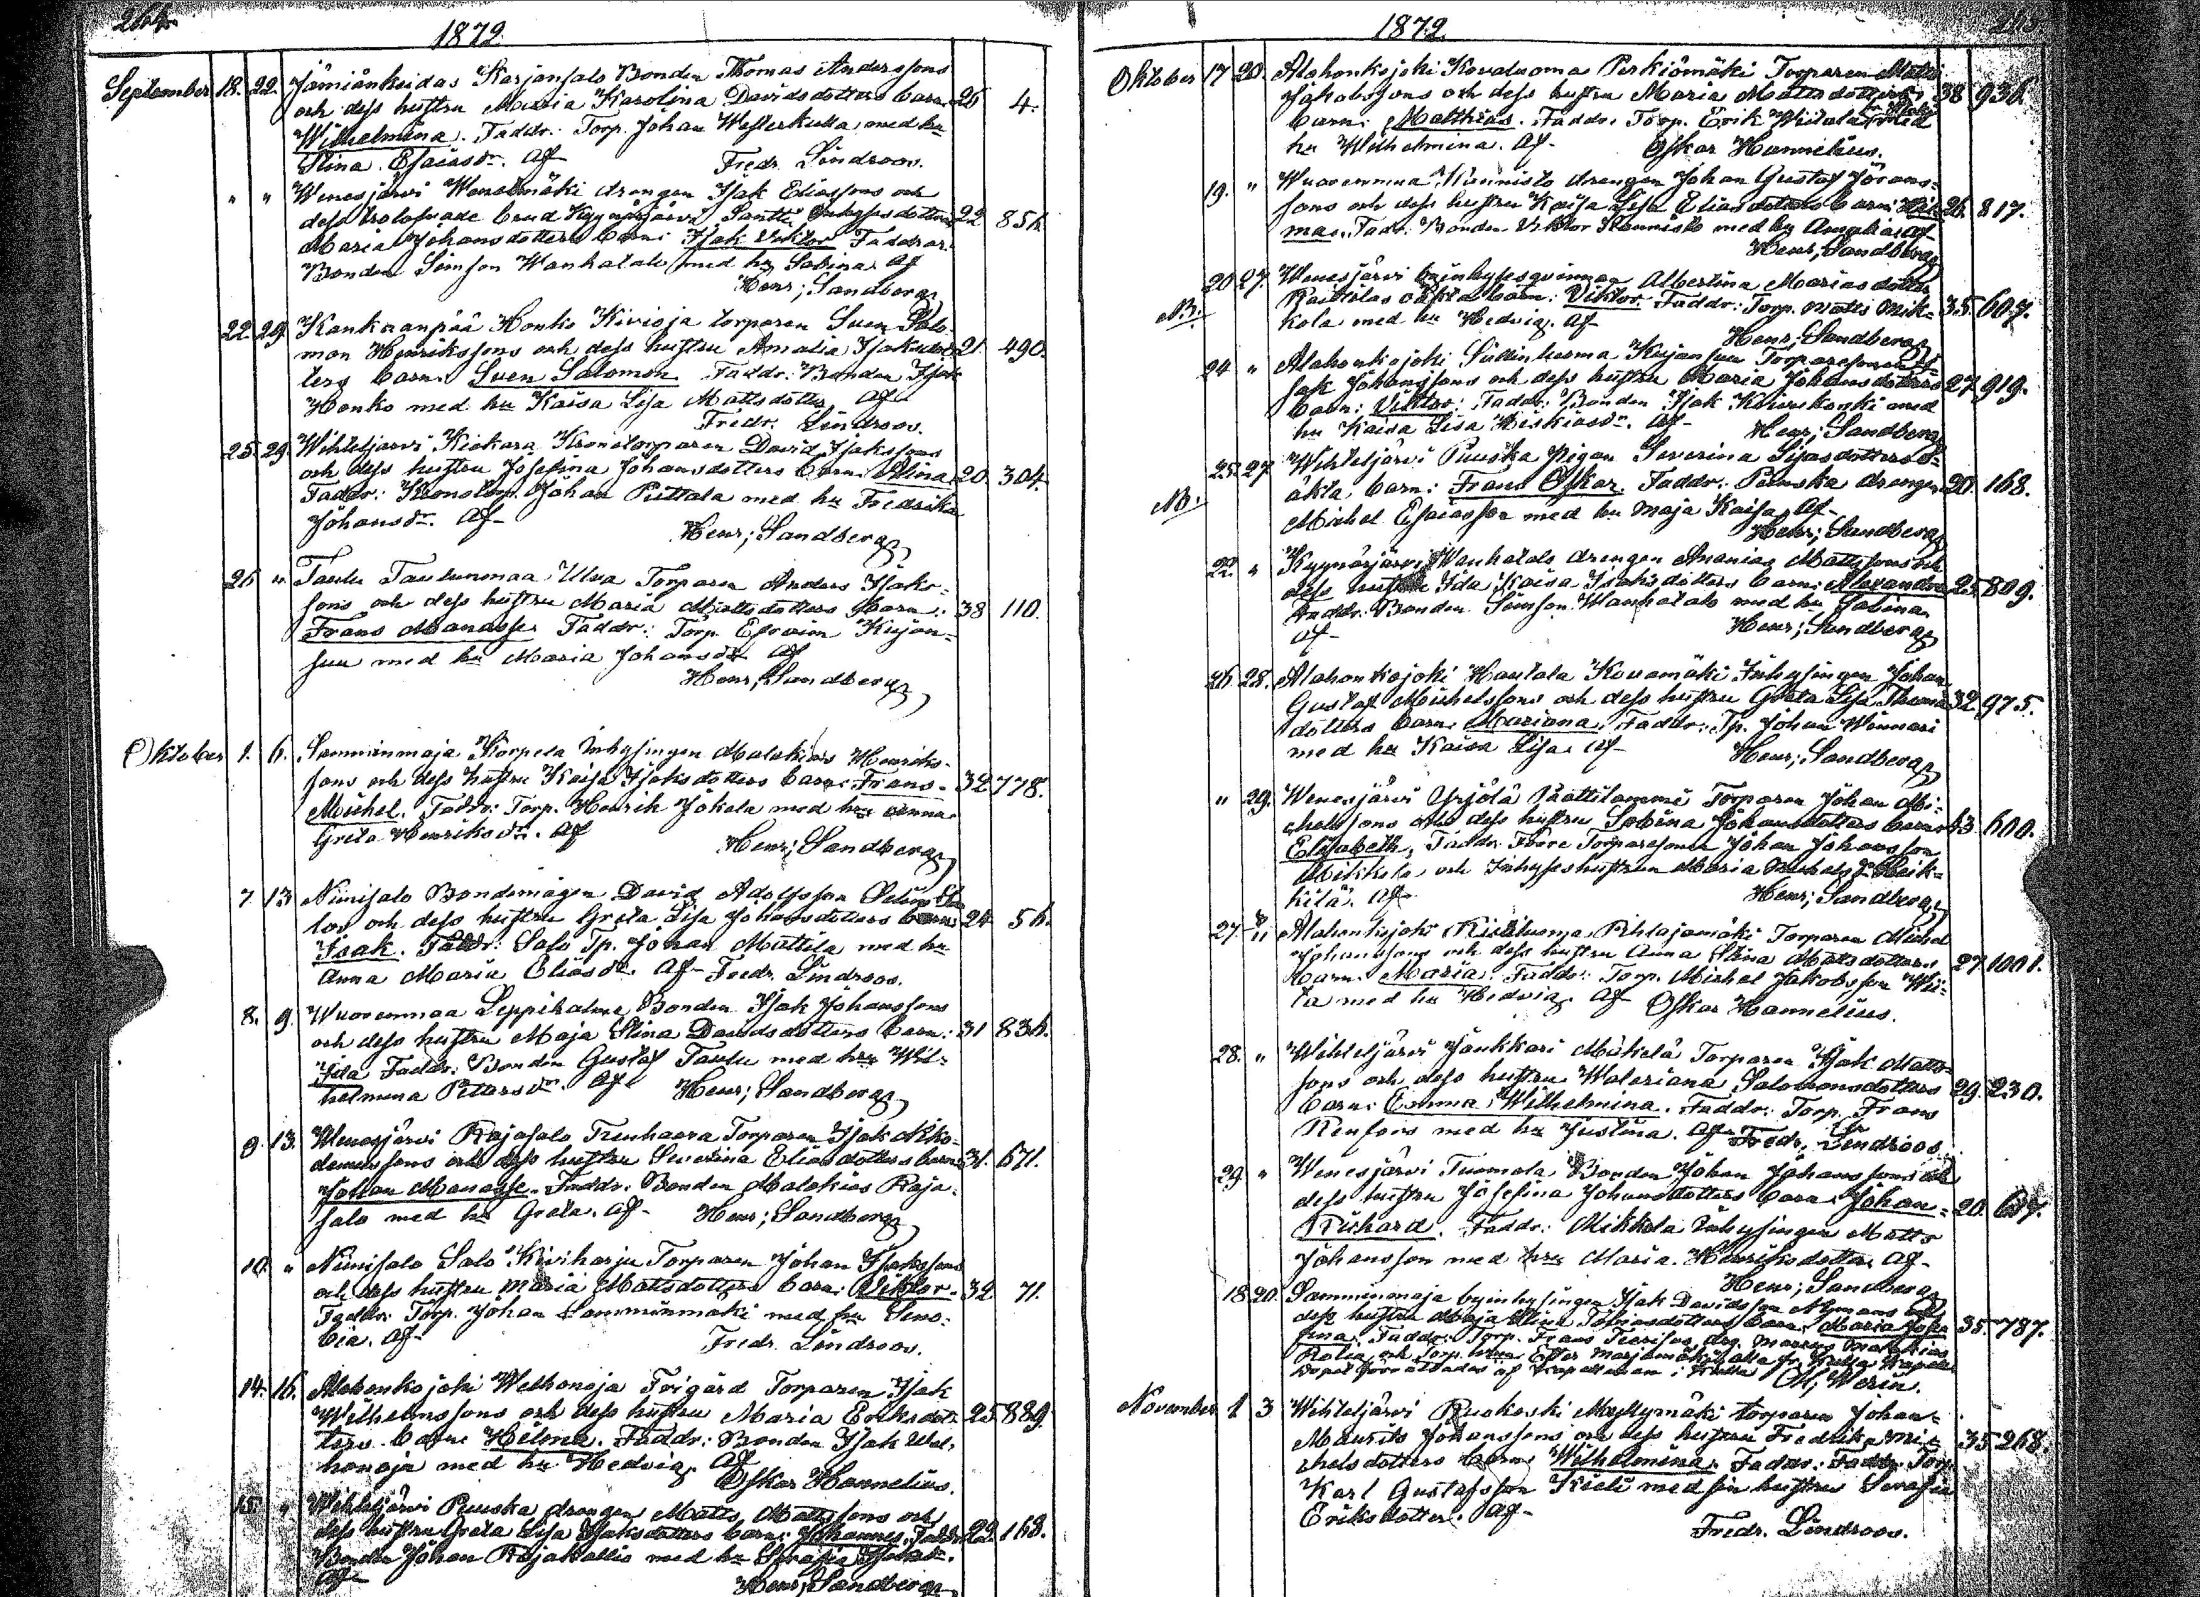 264.
1879.
September 18. 22. Jämiänkeidas Karjansalo Bonden Thomas Anderssons
och dess hustru Maria Karolina Davidsdotters barn 26 4.
Wilhelmina. Faddr: Torp. Johan Westerkulla med hu
Stina Esaiasdr. Af Fredr. Lindroos.
" " Wenesjärvi drengen Isak Eliassons och
dess trolofvade brud Kyynärjärvi Santti 22 856.
Maria Johansdotters barn: Isak Viktor Faddrar:
Bonden Simson Wanhatalo med hu Sabina. Af
Henr; Sandberg
22. 29. Kankaanpää Honko Kivioja torparen Sven Salo-
mon Henrikssons och dess hustru Amalia Isaksdot- 21. 490.
ters barn: Sven Salomon. Faddr: Bonden Isak
Honko med hu Kaisa Lisa Mattsdotter. Af
Fredr. Lindroos.
25. 29. Wihteljärvi Kiekara Kronotorparen David Isakssons
och dess hustru Josefina Johansdotters barn: Alina 20. 304.
Faddr: Kronotorp. Johan Puttala med hu Fredrika
Johansdr. Af-
Henr; Sandberg
26 " Taulu Taulunmaa Ulva Torparen Anders Isaks-
sons och dess hustru Maria Mattsdotters barn: 38 110.
Frans Manasse. Faddr: Torp. Efraim Kujan-
suu med hu Maria Johansdr. Af
Henr; Sandberg
Oktober 1. 6. Samminmaja Korpela Inhysingen Malakias Henriks-
sons och dess hustru Kaisa Isaksdotters barn: Frans- 32 778.
Michel. Faddr: Torp. Henrik Jokela med hru Anna
Greta Henriksdr. Af
Henr; Sandberg
7. 13 Niinisalo Bondemågen David Adolfsson
och dess hustru Greta Lisa Johansdotters barn 24 56.
Isak. Faddr: Salo Tp. Johan Mattila med hu
Anna Maria Eliasdr. Af- Fredr. Lindroos.
8. 9. Wuorenmaa Leppihalme Bonden Isak Johanssons
och dess hustru Maja Stina Davidsdotters barn: 31 836.
Ida Faddr: Bonden Gustaf Taulu med hru Wil-
helmina Pettersdr. Af Henr; Sandberg
9. 13. Wenesjärvi Rajasalo Trenhaara Torparen Isak Niko-
demussons och dess hustru Severina Eliasdotters barn 31. 671.
Johan Manasse. Faddr: Bonden Malakias Raja-
salo med hu Greta. Af- Henr; Sandberg
10. " Niinisalo Salo Kiviharju Torparen Johan Isakssons
och dess hustru Maria Mattsdotters barn: Viktor. 32 71.
Faddr: Torp. Johan Samminmäki med hu Seno-
bia. Af- Fredr. Lindroos.
14. 16. Alahonkajoki Welhonoja Frigård Torparen Isak
Wilhelmssons och dess hustru Maria Eriksdot- 25 889.
ters barn: Helena. Faddr: Bonden Isak Wel-
honoja med hu Hedvig. Af
Oskar Hannelius.
15. " Wihteljärvi Puuska drengen Matts Mattssons och
dess hustru Greta Lisa Isaksdotters barn: Johannes. Faddr: 22. 168.
Bonden Johan Rajakallio med hu Serafia Isaksdr.
Af-
Henr; Sandberg
265
1879.
Oktober 17 20. Alahonkajoki Kovaluoma Perkiömäki Torparen Matts
Jakobssons och dess hustru Maria Mattsdotters 38 936.
barn: Matthias. Faddr: Torp. Erik Wiitala med
hu Wilhelmina. Af- Oskar Hannelius.
19. " Wuorenmaa Kunnisto drengen Johan Gustaf Görans-
sons och dess hustru Kaisa Lisa Eliasdotters barn: 26. 817.
Faddr: Bonden Viktor Kunnisto med hu Amalia. Af-
Henr; Sandberg
20 27. Wenesjärvi byinhysesqvinnan Albertina Mariasdotter
NB. oäkta barn: Viktor. Faddr: Torp. Matts Mik- 35 607.
kola med hu Hedvig. Af-
Henr; Sandberg
24 " Alahonkajoki Sullinluoma Kujansuu Torparesonen I-
sak Johanssons och dess hustru Maria Johansdotters 27 919.
barn: Viktor. Faddr: Bonden Isak Kiviniskoski med
hu Kaisa Lisa Hiskiasdr. Af- Henr; Sandberg
25. 27. Wihteljärvi Puuska Pigan Severina Lisasdotters o-
NB. äkta barn: Frans Oskar. Faddr: Puuska drengen 20. 168.
Michel Esaiasson med hu Maja Kaisa. Af-
Henr; Sandberg
22. " Kyynärjärvi Wanhatalo drengen Ananias Mattssons och
dess hustru Ida Kaisa Isaksdotters barn: Alexandra 25 809.
Faddr: Bonden Simson Wanhatalo med hu Sabina
Af- Henr; Sandberg
26 28. Alahonkajoki Hautala Kovamäki Inhysingen Johan
Gustaf Michelssons och dess hustru Greta Lisa Thomas- 32 975.
dotters barn: Mariana. Faddr: Tp. Johan Winnari
med hu Kaisa Lisa. Af- Henr; Sandberg
" 29. Wenesjärvi Yrjölä Torparen Johan Mi-
chelssons och dess hustru Sabina Johansdotters barn 43 600.
Elisabeth. Faddr: Förre Torparesonen Johan Johansson
Mikkola och Inhyseshustrun Maria Michelsdr Heik-
kilä. Af- Henr; Sandberg
27 " Alahonkajoki Pihlajamäki Torparen Michel
Johanssons och dess hustru Anna Stina Mattsdotters 27 1001.
barn: Maria. Faddr: Torp. Michel Jakobsson Wii-
ta med hu Hedvig. Af Oskar Hannelius.
28. " Wihteljärvi Jankkari Mäkelä Torparen Isak Matts-
sons och dess hustru Waleriana Salomonsdotters 29. 230.
barn: Emma Wilhelmina. Faddr: Torp. Frans
Renfors med hu Justina. Af Fredr. Lindroos.
29. " Wenesjärvi Tuomola Bonden Johan Johanssons och
dess hustru Josefina Johansdotters barn: Johan- 20. 687.
Richard. Faddr: Mikkola Inhysingen Matts
Johansson med hru Maria Henriksdotter. Af-
Henr; Sandberg
18 20. Samminmaja byinhysingen Isak Davidsson Nymans och
dess hustru Maja Stina Tobiasdotters barn: Maria Josefa- 35. 787.
fina. Faddr: Torp. Frans
och Torp. Ester Marjamäki alla fr.
Dopet förrättades af Kapellanen i
Werin.
November 1 3 Wihteljärvi Ruokoski Myllymäki torparen Johan-
Maurits Johanssons och dess hustru Fredrika Mi- 35 268.
chelsdotters barn: Wilhelmina. Faddr: Faddr: Torp.
Karl Gustafsson Kieli med sin hustru Serafia
Eriksdotter. Af-
Fredr. Lindroos.